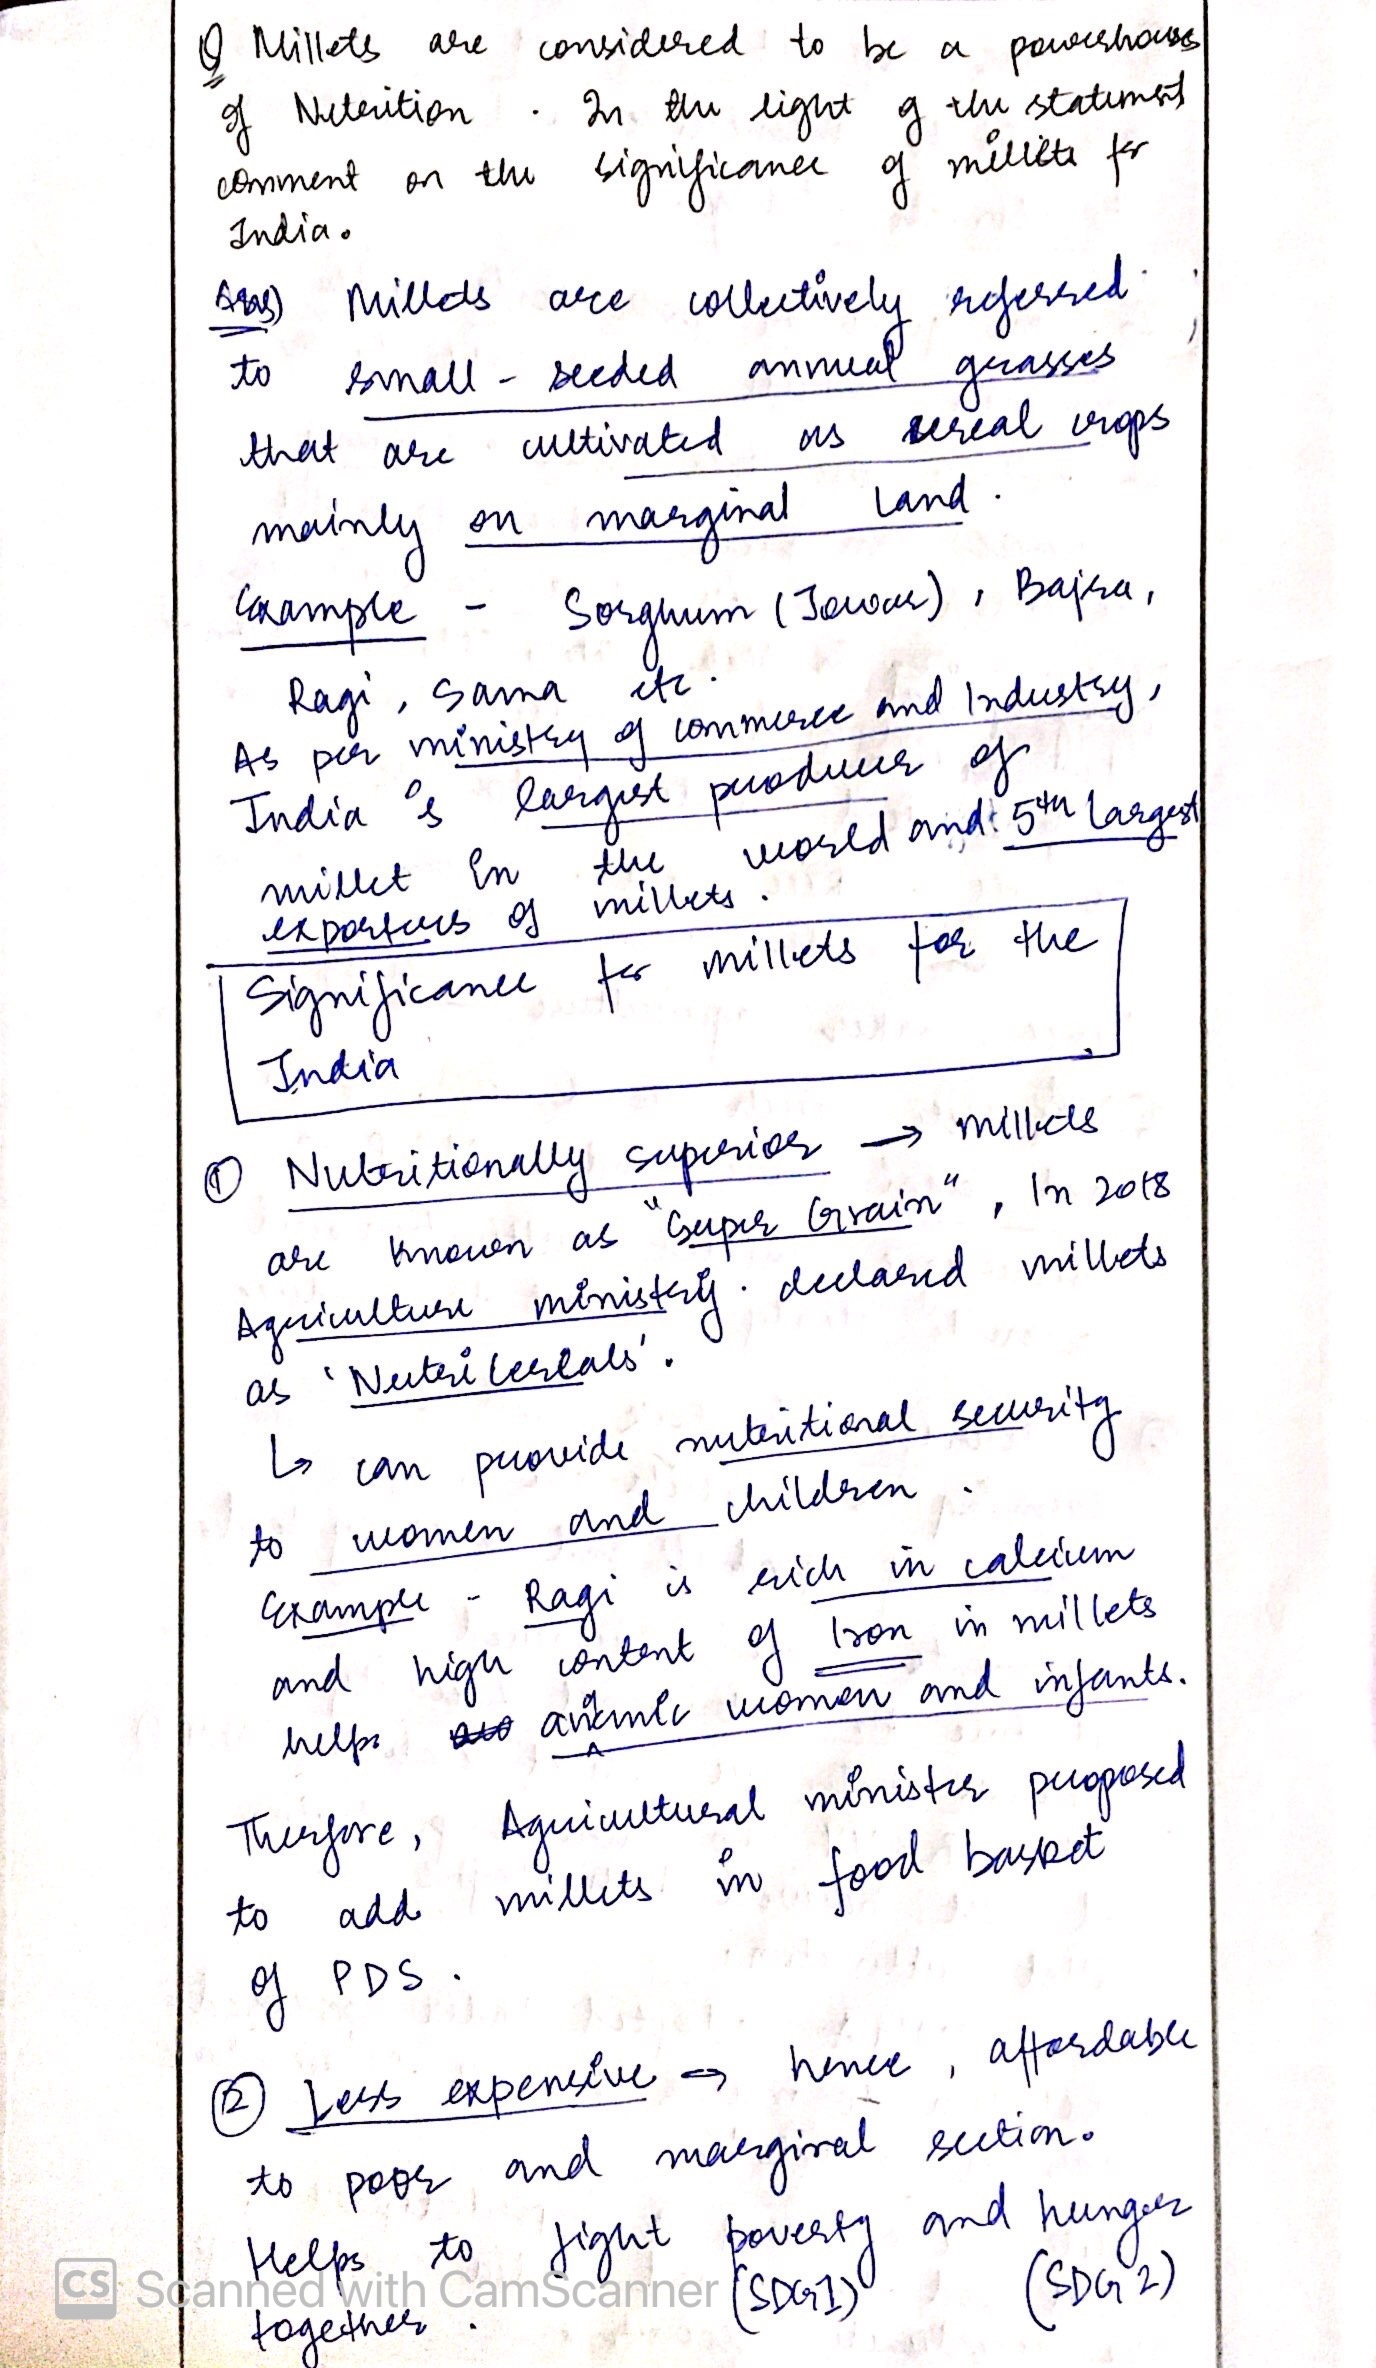 Q Millets are considered to be a powerhouse
of Nutrition. In the light of the statement
comment on the significance of millets for
India.
Ans) Millets are collectively referred
to small-seeded annual grasses
that are cultivated as cereal crops
mainly on marginal land.
Example - Sorghum (Jowar), Bajra,
Ragi, Sama etc.
As per ministry of commerce and Industry,
India is largest producer of
millet in the world and 5th largest
exporters of millets.
Significance for millets for the
India
① Nutritionally superior → millets
are known as "Super Grain", In 2018
Agriculture ministry. declared millets
as 'Nutri Cereals'.
↳ can provide nutritional security
to women and children.
Example - Ragi is rich in calcium
and high content of Iron in millets
helps anemic women and infants.
Therfore, Agricultural minister proposed
to add millets in food basket
of PDS.
② Less expensive → hence, affordable
to poor and marginal section.
Helps to fight poverty and hunger
(SDG1) (SDG 2)
together.
CS Scanned with CamScanner